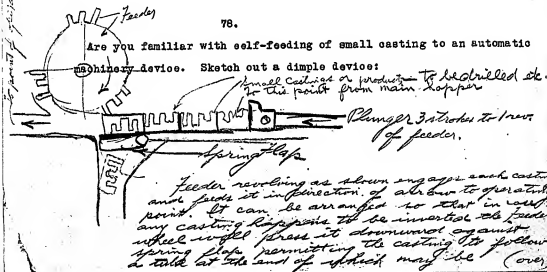 Feeder
78.
Are you familiar with self-feeding of small casting to an automatic
machinery device. Sketch out a dimple device:
Small castings or products to be drilled etc.
to this point from main hopper
Plunger 3 strokes to 1 rev.
of feeder.
Spring Flap
Feeder revolving as shown engages each casting
and feeds it in direction of arrow to operating
point. It can be arranged so that in case
any casting happens to be inverted the Feeder
wheel will press it downward against
spring flap permitting the casting to follow
a tube at the end of which may be (over